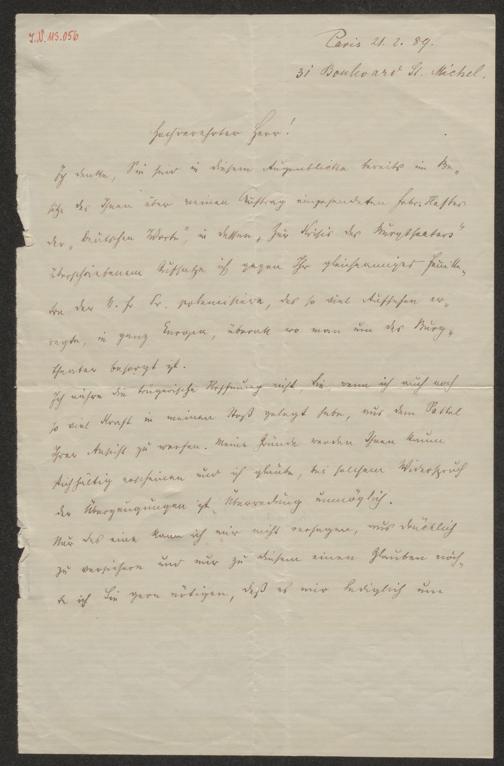 J.N. 115.056
Paris 21. 2. 89.
31 Boulevard St. Michel.
Hochverehrter Herr!
Ich denke, Sie sind in diesem Augenblicke bereits im Be-
sitze des Ihnen über meinen Auftrag eingesendeten Febr. Heftes
der „Deutschen Worte“, in dessen „Zur Krisis des Burgtheaters“
überschriebenem Aufsatze ich gegen Ihr gleichnamiges Feuille-
ton der N. fr. Pr. polemisiere, das so viel Aufsehen er-
regte, in ganz Europa, überall wo man um das Burg-
theater besorgt ist.
Ich nähre die trügerische Hoffnung nicht, Sie, wenn ich auch noch
so viel Kraft in meinen Stoß gelegt habe, aus dem Sattel
Ihrer Ansicht zu werfen. Meine Gründe werden Ihnen kaum
stichhältig erscheinen und ich glaube, bei solchem Widerspruch
der Überzeugungen ist Überredung unmöglich.
Nur das eine kann ich mir nicht versagen, ausdrücklich
zu versichern und nur zu diesem einen Glauben möch-
te ich Sie gern nötigen, daß es mir lediglich um